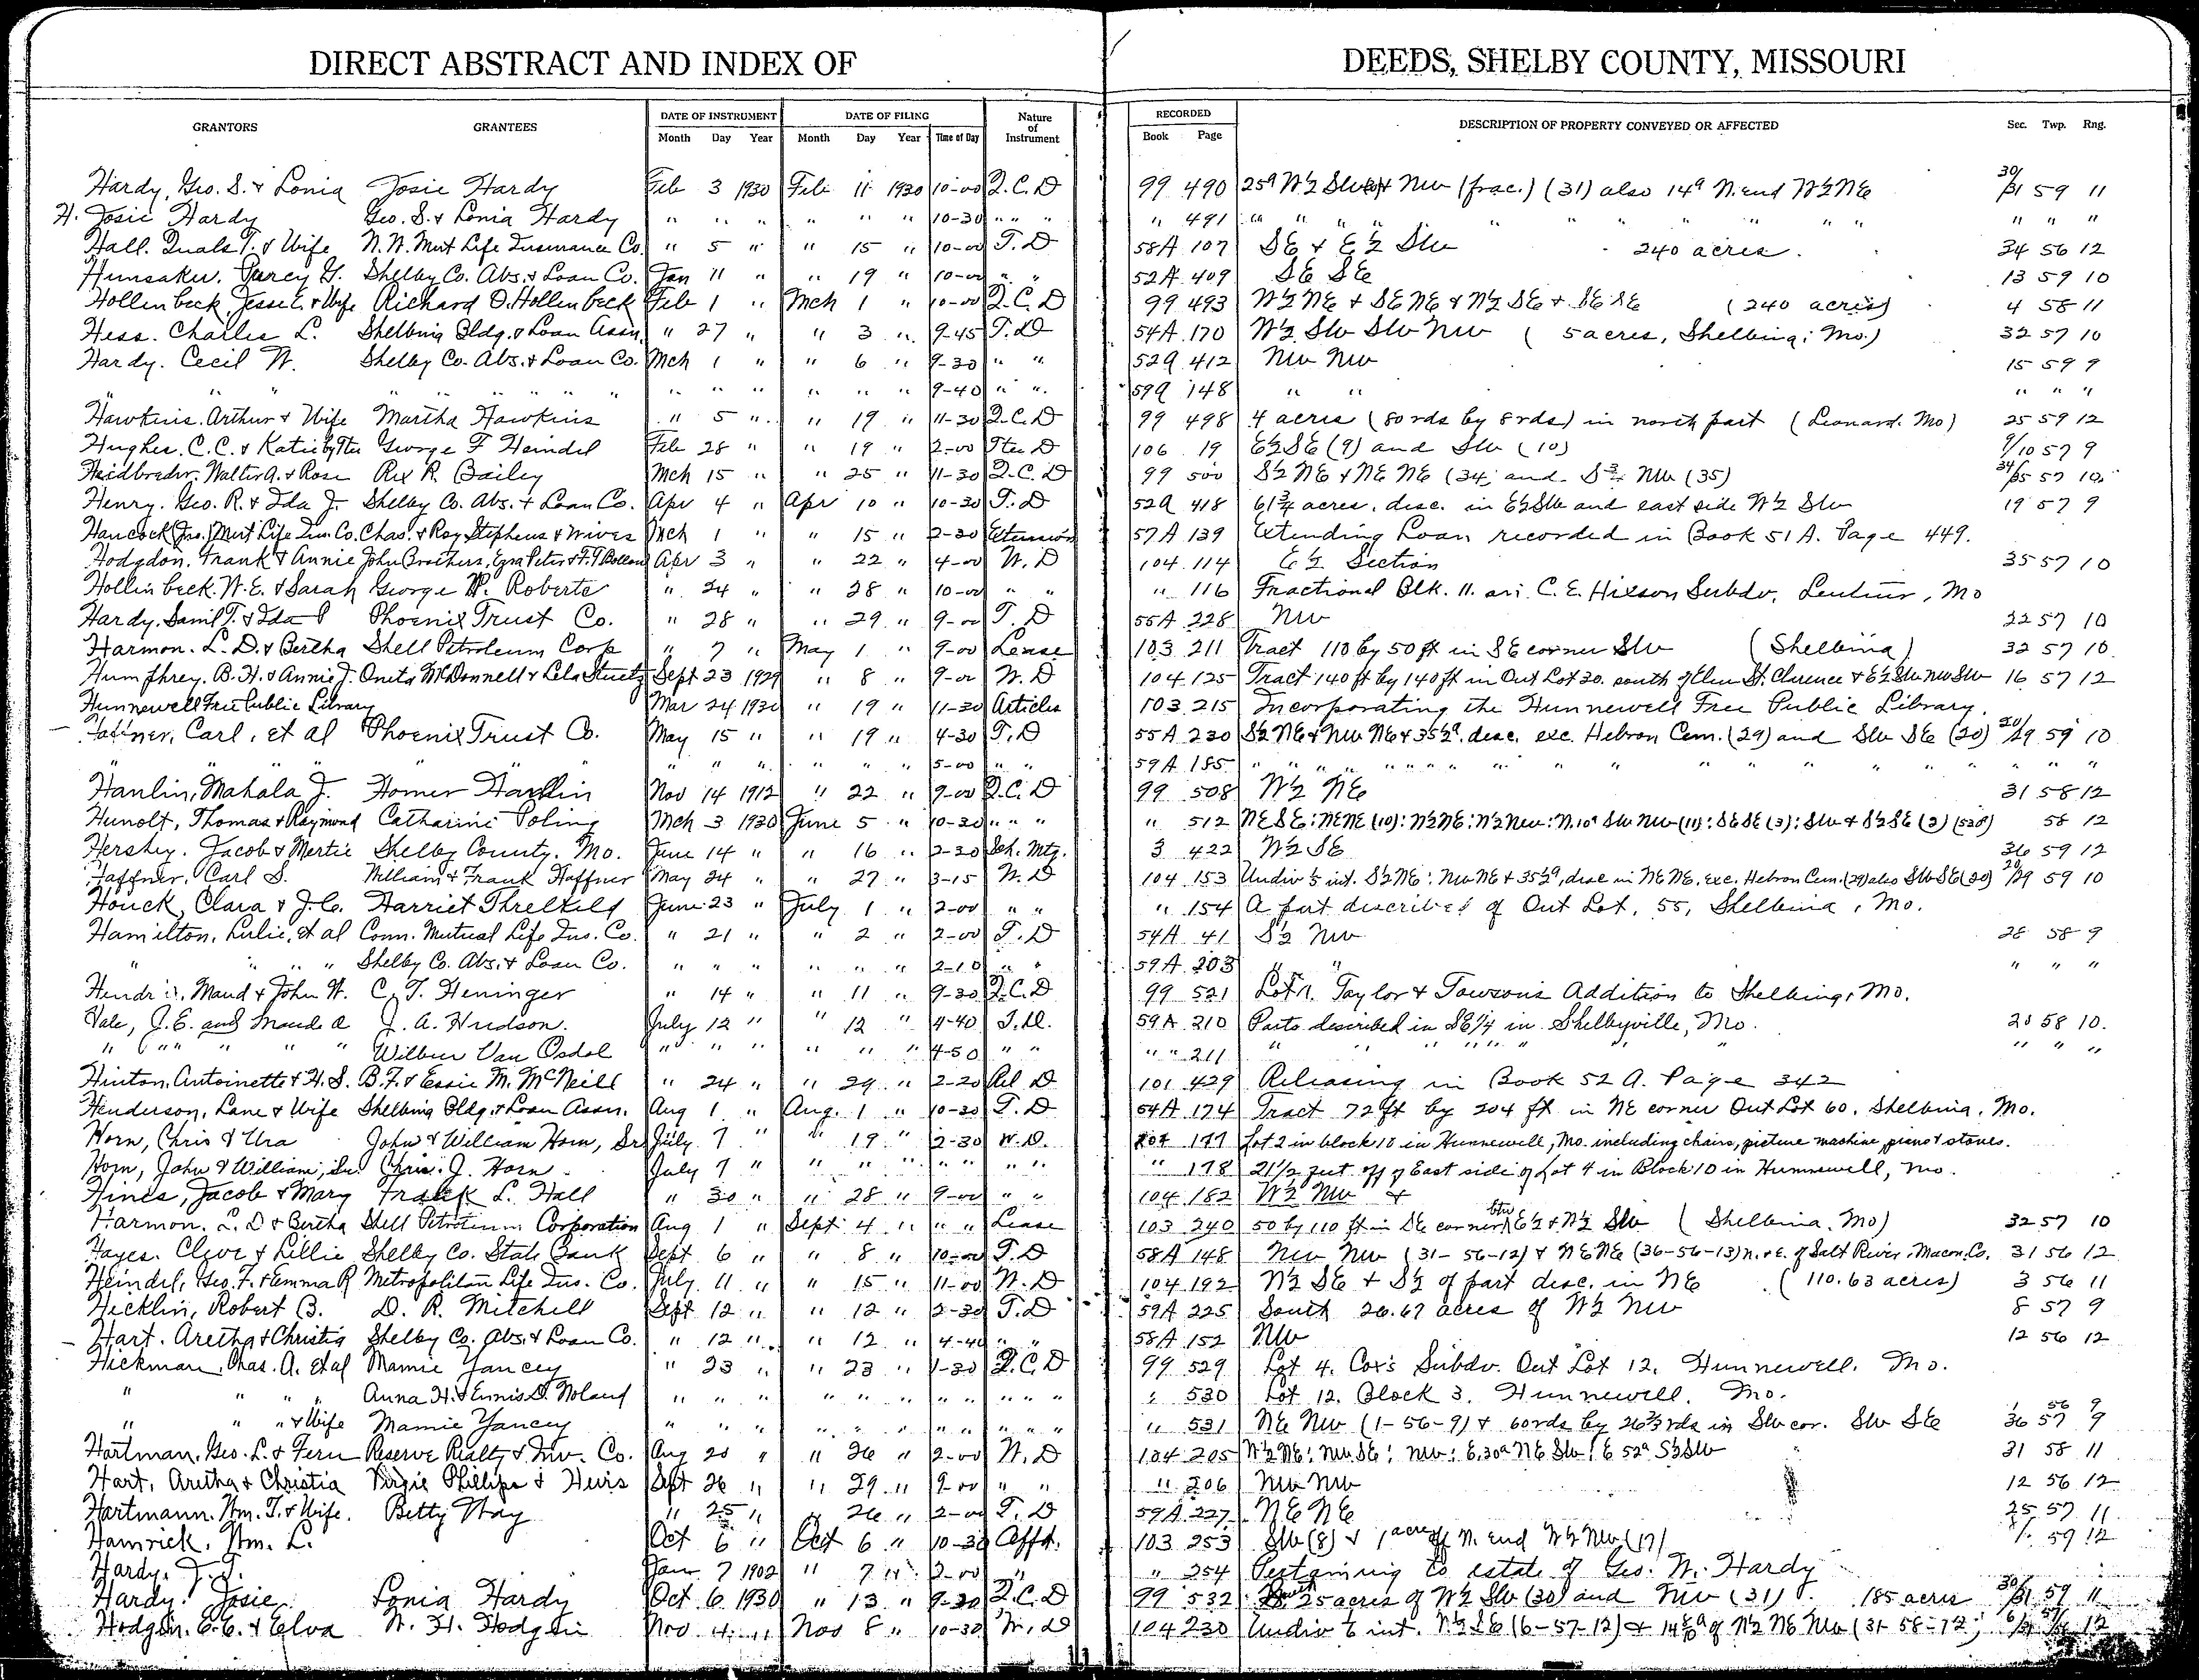 DIRECT ABSTRACT AND INDEX OF DEEDS, SHELBY COUNTY, MISSOURI
GRANTORS GRANTEES DATE OF INSTRUMENT Month Day Year DATE OF FILING Month Day Year Time of Day Nature of Instrument RECORDED Book Page DESCRIPTION OF PROPERTY CONVEYED OR AFFECTED Sec. Twp. Rng.
Hardy, Geo. S. & Lonia Josie Hardy Feb 3 1930 Feb 11 1930 10-00 Q.C.D 99 490 25a W½ SW & NW (frac.) (31) also 14a N. end W½ NE 30/31 59 11
H. Josie Hardy Geo. S. & Lonia Hardy " " " " " " 10-30 " " " " 491 " " " " " " " " " " "
Hall. Quals T. & Wife N.W. Mut Life Insurance Co. " 5 " " 15 " 10-00 T.D 58A 107 SE & E½ SW 240 acres. 34 56 12
Hunsaker. Percy G. Shelby Co. Abs. & Loan Co. Jan 11 " " 19 " 10-00 " " 52A 409 SE SE 13 59 10
Hollenbeck Jesse E. & Wife Richard O. Hollenbeck Feb 1 " Mch 1 " 10-00 Q.C.D 99 493 W½ NE & SE NE & W½ SE & SE SE (240 acres) 4 58 11
Hess. Charles L. Shelbina Bldg. & Loan Assn. " 27 " " 3 " 9-45 T.D 54A 170 W½ SW SW NW (5 acres, Shelbina, Mo.) 32 57 10
Hardy. Cecil W. Shelby Co. Abs. & Loan Co. Mch 1 " " 6 " 9-30 " " 52A 412 NW NW 15 59 9
" " " " " " " " " " " " " " 9-40 " " 59A 148 " " " " "
Hawkins. Arthur & Wife Martha Hawkins " 5 " " 19 " 11-30 Q.C.D 99 498 4 acres (80 rds by 8 rds) in north part (Leonard. Mo) 25 59 12
Hughes. C.C. & Katie by Ttee George F Heindel Feb 28 " " 19 " 2-00 Ttee D 106 19 E½ SE (9) and SW (10) 9/10 57 9
Heidbreder. Walter A. & Rose Rex R. Bailey Mch 15 " " 25 " 11-30 Q.C.D 99 500 S½ NE & NE NE (34) and NW (35) 34/35 57 10
Henry. Geo. R. & Ida J. Shelby Co. Abs. & Loan Co. Apr 4 " Apr 10 " 10-30 T.D 52A 418 61¾ acres. desc. in E½ SW and east side W½ SW 19 57 9
Hancock (Jno.) Mut Life Ins. Co. Chas. & Roy Stephens & Wives Mch 1 " " 15 " 2-30 Extension 57A 139 Extending Loan recorded in Book 51A. Page 449.
Hodgdon. Frank & Annie John Brothers, Ezra Peter & F.T. Apr 3 " " 22 " 4-00 W.D 104 114 E½ Section 35 57 10
Hollinbeck. W.E. & Sarah George W. Roberts " 24 " " 28 " 10-00 " " " 116 Fractional Blk. 11. C.E. Hixson Subdv. Lentner, Mo
Hardy. Saml T. & Ida Phoenix Trust Co. " 28 " " 29 " 9-00 T.D 55A 228 NW 22 57 10
Harmon. L.D. & Bertha Shell Petroleum Corp " 7 " May 1 " 9-00 Lease 103 211 Tract 110 by 50 ft in SE corner SW (Shelbina) 32 57 10
Humphrey. B.H. & Annie J. Oneta McDonnell & Lela Sept 23 1929 " 8 " 9-00 W.D 104 125 Tract 140 ft by 140 ft in Out Lot 30. south of Elm St. Clarence & E½ SW NW SW 16 57 12
Hunnewell Free Public Library Mar 24 1930 " 19 " 11-30 Articles 103 215 Incorporating the Hunnewell Free Public Library.
Haffner, Carl, et al Phoenix Trust Co. May 15 " " 19 " 4-30 T.D 55A 230 S½ NE & NW NE & 35½a. desc. exc. Hebron Cem. (29) and SW SE (20) 20/29 59 10
" " " " " " " " " " 5-00 " " 59A 185 " " " " " " " " " " " " " " " "
Hanlin, Mahala J. Homer Hanlin Nov 14 1912 " 22 " 9-00 Q.C.D 99 508 W½ NE 31 58 12
Hunolt, Thomas & Raymond Catharine Poling Mch 3 1930 June 5 " 10-30 " " " " 512 NE SE: NE NE (10): W½ NE: W½ NW: N. 10a SW NW (11): SE SE (3): SW & S½ SE (2) 58 12
Hershey. Jacob & Mertie Shelby County, Mo. June 14 " " 16 " 2-30 Sch. Mtg. 3 422 W½ SE 36 59 12
Haffner, Carl S. William & Frank Haffner May 24 " " 27 " 3-15 W.D 104 153 Undiv ⅕ int. S½ NE: NW NE & 35½a, desc in NE NE. exc. Hebron Cem. (29) also SW SE (20) 20/29 59 10
Houck, Clara & J.C. Harriet Threlkeld June 23 " July 1 " 2-00 " " " 154 A part described of Out Lot, 55, Shelbina, Mo.
Hamilton, Lulie, et al Conn. Mutual Life Ins. Co. " 21 " " 2 " 2-00 T.D 54A 41 S½ NW 28 58 9
" " " " Shelby Co. Abs. & Loan Co. " " " " " " 2-10 " " 59A 203 " " " " "
Maud & John W. C.T. Heninger " 14 " " 11 " 9-30 Q.C.D 99 521 Lot 1. Taylor & Towson's Addition to Shelbina, Mo.
Hale, J.E. and Maude A J.A. Hudson. July 12 " " 12 " 4-40 T.D. 59A 210 Parts described in SE¼ in Shelbyville, Mo. 20 58 10.
" " " " " " Wilbur Van Osdol " " " " " " 4-50 " " " " 211 " " " " " " " " "
Hinton, Antoinette & H.S. B.F. & Essie M. McNeill " 24 " " 29 " 2-20 Rel D 101 429 Releasing in Book 52A. Page 342
Henderson, Lane & Wife Shelbina Bldg. & Loan Assn. Aug 1 " Aug. 1 " 10-30 T.D 54A 174 Tract 72 ft by 204 ft in NE corner Out Lot 60. Shelbina. Mo.
Horn, Chris & Ura John & William Horn, Sr. July 7 " " 19 " 2-30 W.D. 104 177 Lot 2 in block 10 in Hunnewell, Mo. including chairs, picture machine, piano & stoves.
Horn, John & William, Sr. Chris. J. Horn July 7 " " " " " " " " 178 21½ feet off of East side of Lot 4 in Block 10 in Hunnewell, Mo.
Hines, Jacob & Mary Frank L. Hall " 30 " " 28 " 9-00 " " 104 182 W½ NW &
Harmon. L.D & Bertha Shell Petroleum Corporation Aug 1 " Sept 4 " " " Lease 103 240 50 by 110 ft in SE corner btw E½ & W½ SW (Shelbina. Mo) 32 57 10
Hayes. Cleve & Lillie Shelby Co. State Bank Sept 6 " " 8 " 10-00 T.D 58A 148 NW NW (31-56-12) & NE NE (36-56-13) n. & E. of Salt River. Macon Co. 31 56 12
Heindel, Geo. F. & Emma R Metropolitan Life Ins. Co. July 11 " " 15 " 11-00 W.D 104 192 W½ SE & S½ of part desc. in NE (110.63 acres) 3 56 11
Hecklin, Robert B. D.R. Mitchell Sept 12 " " 12 " 2-30 T.D 59A 225 South 26.67 acres of W½ NW 8 57 9
Hart. Aretha & Christia Shelby Co. Abs. & Loan Co. " 12 " " 12 " 4-40 " " 58A 152 NW 12 56 12
Hickman, Chas. A. et al Mamie Yancey " 23 " " 23 " 1-30 Q.C.D 99 529 Lot 4. Cox's Subdv. Out Lot 12. Hunnewell. Mo.
" " " " Anna H. & Ennis D. Noland " " " " " " " " " " " 530 Lot 12. Block 3. Hunnewell. Mo.
" " " & Wife Mamie Yancey " " " " " " " " " " " 531 NE NW (1-56-9) & 60 rds by 26⅔ rds in SW cor. SW SE 1/36 56/57 9/9
Hartman, Geo. L. & Fern Reserve Realty & Inv. Co. Aug 20 " " 26 " 2-00 W.D 104 205 W½ NE: NW SE: NW: E. 30a NE SW: E 52a S½ SW 31 58 11
Hart, Aretha & Christia Virgie Phillips & Heirs Sept 26 " " 29 " 9-00 " " " 206 NW NW 12 56 12
Hartmann. Wm. T. & Wife. Betty Way " 25 " " 26 " 2-00 T.D 59A 227 NE NE 25 57 11
Hamrick. Wm. L. Oct 6 " Oct 6 " 10-30 Afft. 103 253 SW (8) & 1 acre off N. end W½ NW (17) 59 12
Hardy. J.T. Jan 7 1902 " 7 " 2-00 " " 254 Pertaining to estate of Geo. W. Hardy
Hardy. Josie. Lonia Hardy Oct. 6 1930 " 13 " 9-30 Q.C.D 99 532 South 25 acres of W½ SW (30) and NW (31). 185 acres 30/31 59 11
Hodgin. E.E. & Elva W.H. Hodgin Nov 4 " Nov 8 " 10-30 W.D 104 230 Undiv int. W½ SE (6-57-12) & of W½ NE NW (31-58-12) 12